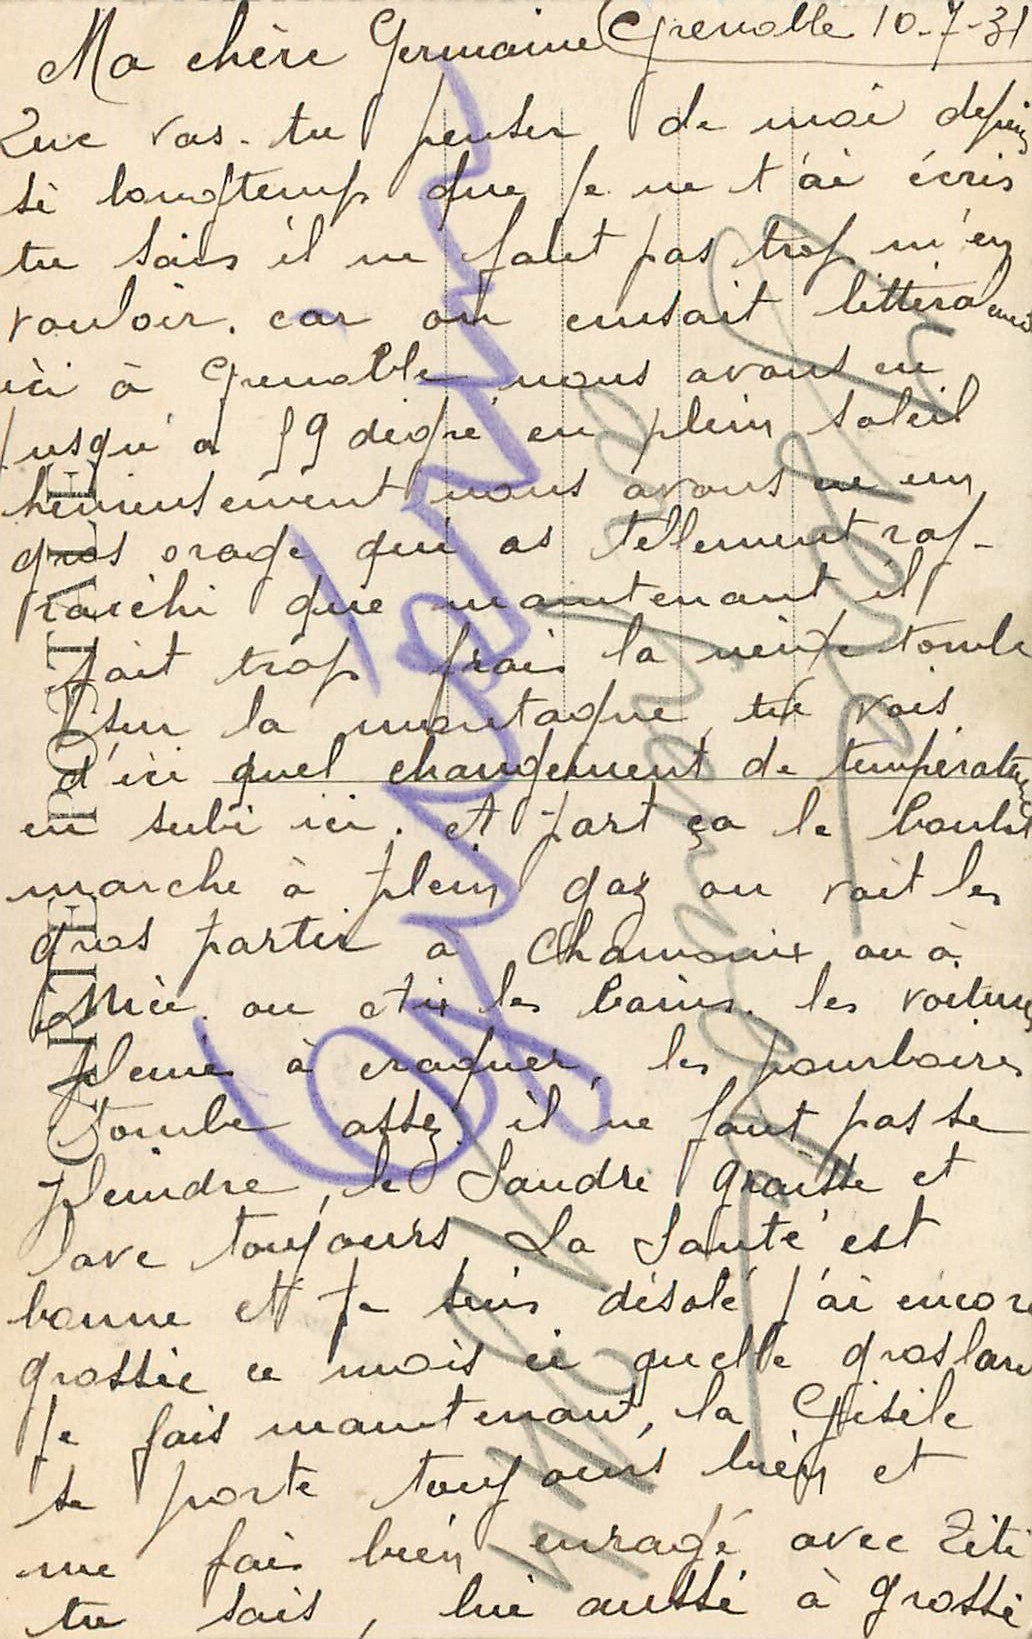 Grenoble 10-7-31
Ma chère Germaine
Que vas-tu penser de moi depuis
si longtemp que je ne t'ai écris
tu sais il ne falut pas trop m'en
vouloir. car on cuisait littéralement
ici à Grenoble nous avons eu
jusqu'a 59 degré en plein soleil
heureusement nous avons eu un
gros orage qui as tellement raf-
raichi que maintenant il
fait trop frais la neige tombe
sur la montagne, tu vois
d'ici quel changement de température
en subi ici. et part ça le boulot
marche à plein gaz on voit les
gros partir a Chamonix ou à
Nice. ou Aix les bains. les voitures
pleine à craquer, les pourboires
tombe assez. il ne faut pas se
pleindre, le Sandre graisse et
lave toujours. La Santé est
bonne et je suis désolé j'ai encore
grossie ce mois ci quelle gros lard
je fais maintenant, la Gisèle
se porte toujours bien et
me fais bien enragé avec Titi
tu sais, lui aussi à grossi
CARTE POSTALE